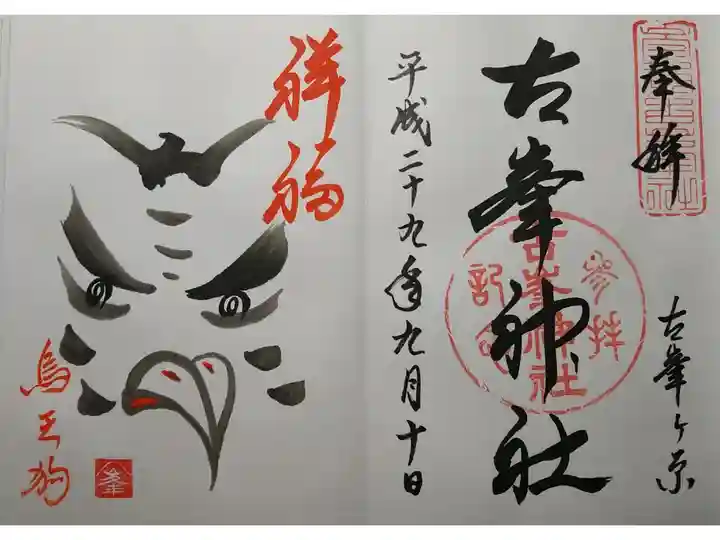 奉拝
古峯ヶ原
古峯神社
参拝
記念
古峯神社
平成二十九年九月十日
祥福
烏天狗
峯